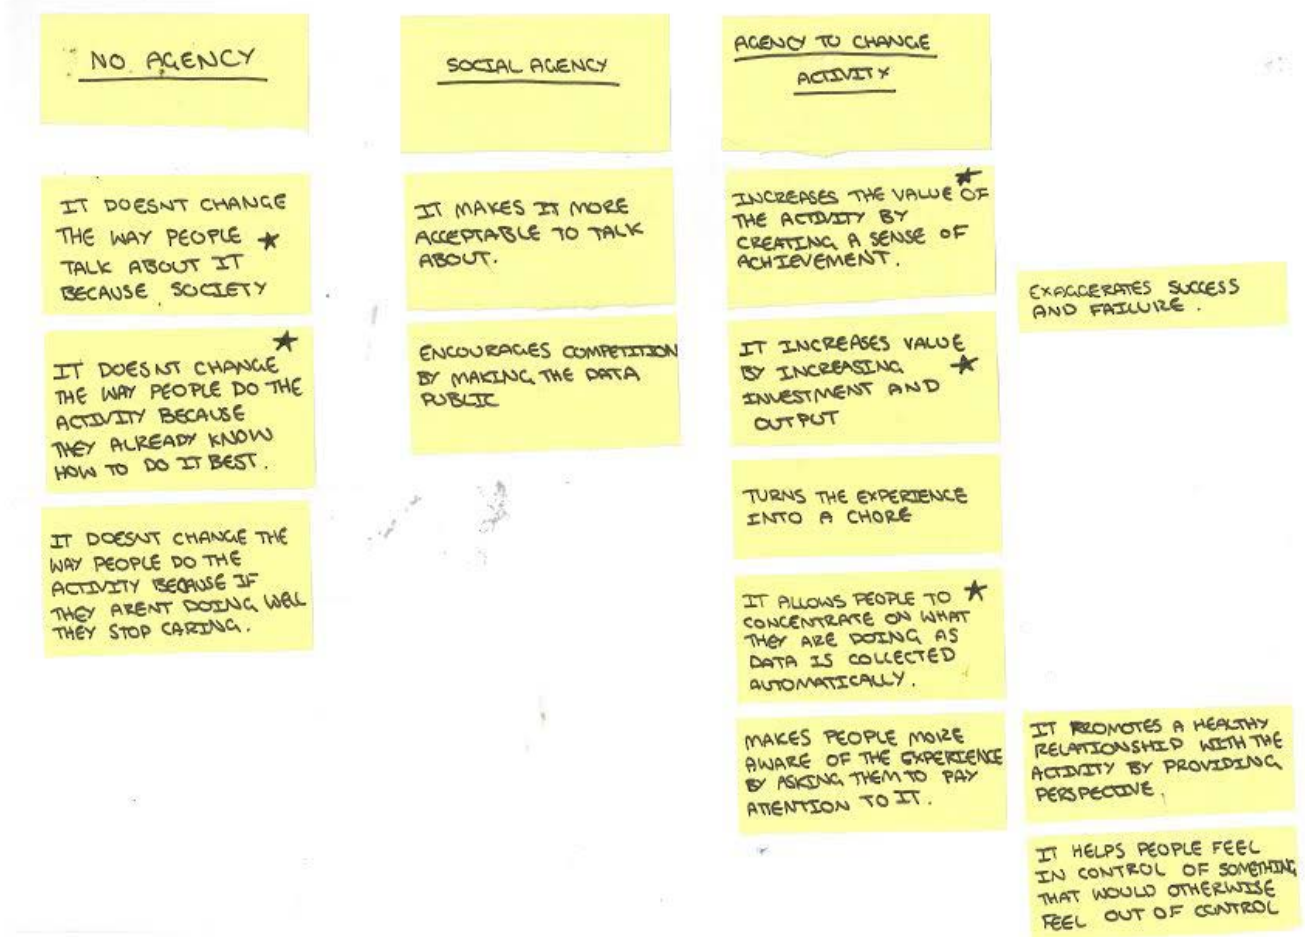 NO AGENCY
IT DOESNT CHANGE
THE WAY PEOPLE
TALK ABOUT IT
BECAUSE SOCIETY
IT DOESNT CHANGE
THE WAY PEOPLE DO THE
ACTIVITY BECAUSE
THEY ALREADY KNOW
HOW TO DO IT BEST.
IT DOESNT CHANGE THE
WAY PEOPLE DO THE
ACTIVITY BECAUSE IF
THEY ARENT DOING WELL
THEY STOP CARING.
SOCIAL AGENCY
IT MAKES IT MORE
ACCEPTABLE TO TALK
ABOUT.
ENCOURAGES COMPETITION
BY MAKING THE DATA
PUBLIC
AGENCY TO CHANGE
ACTIVITY
INCREASES THE VALUE OF
THE ACTIVITY BY
CREATING A SENSE OF
ACHIEVEMENT.
IT INCREASES VALUE
BY INCREASING
INVESTMENT AND
OUTPUT
TURNS THE EXPERIENCE
INTO A CHORE
IT ALLOWS PEOPLE TO
CONCENTRATE ON WHAT
THEY ARE DOING AS
DATA IS COLLECTED
AUTOMATICALLY.
MAKES PEOPLE MORE
AWARE OF THE EXPERIENCE
BY ASKING THEM TO PAY
ATTENTION TO IT.
EXAGGERATES SUCCESS
AND FAILURE.
IT PROMOTES A HEALTHY
RELATIONSHIP WITH THE
ACTIVITY BY PROVIDING
PERSPECTIVE.
IT HELPS PEOPLE FEEL
IN CONTROL OF SOMETHING
THAT WOULD OTHERWISE
FEEL OUT OF CONTROL